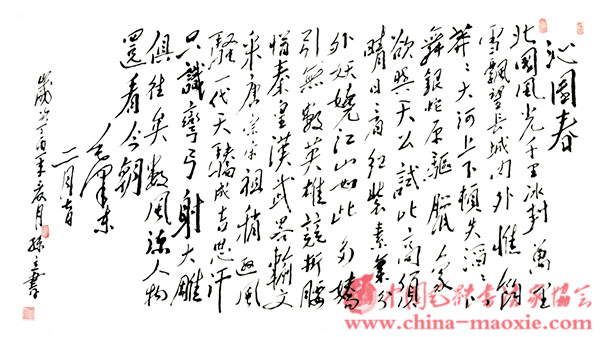 沁園春
北國風光千里冰封萬里
雪飄望長城內外惟餘
莽々大河上下頓失滔々山
舞銀蛇原驅臘象
欲與天公試比高須
晴日看紅裝素裹分外
妖嬈江山如此多嬌
引無數英雄競折腰
惜秦皇漢武略輸文
采唐宗宋祖稍遜風
騷一代天驕成吉思汗
只識彎弓射大雕
俱往矣數風流人物
還看今朝
毛澤東
二月
歲次丁酉年
www.china-maoxie.com